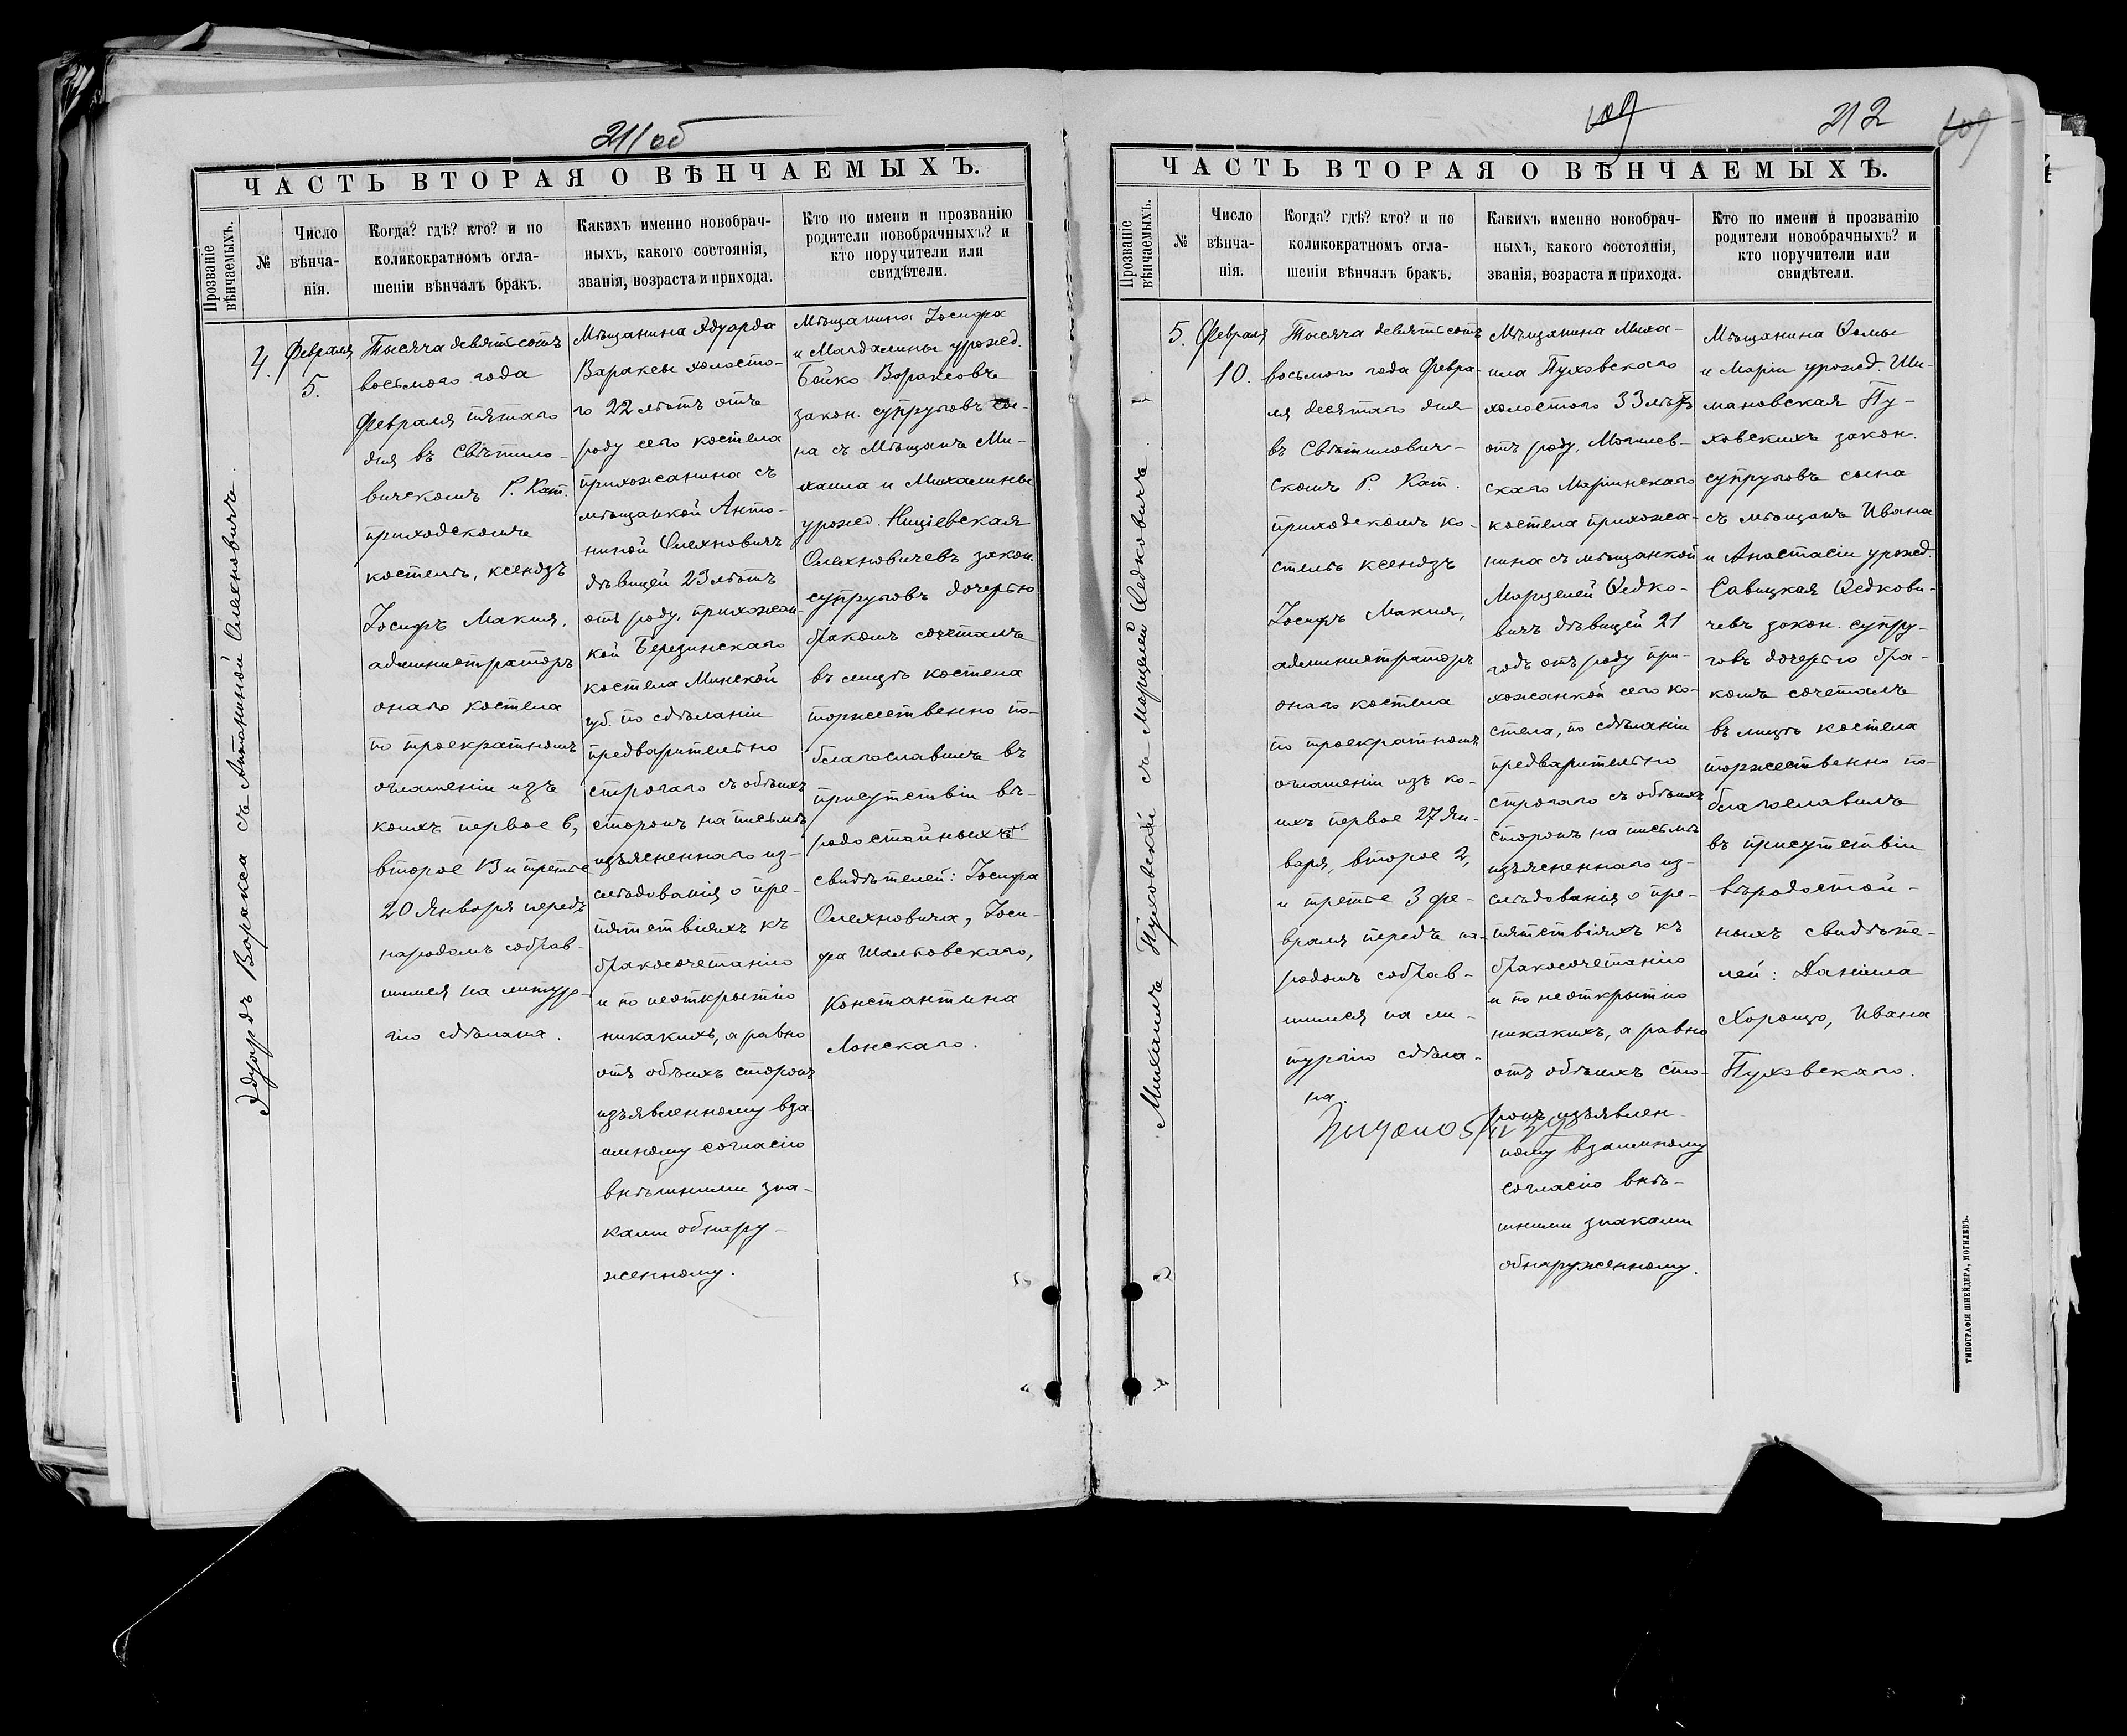 211 об
ЧАСТЬ ВТОРАЯ О ВѢНЧАЕМЫХЪ.
Прозваніе
вѣнчаемыхъ.
№
Число
вѣнча-
нія.
Когда? гдѣ? кто? и по
коликократномъ огла-
шеніи вѣнчалъ бракъ.
Какихъ именно новобрач-
ныхъ, какого состоянія,
званія, возраста и прихода.
Кто по имени и прозванію
родители новобрачныхъ? и
кто поручители или
свидѣтели.
Эдуардъ Варакса съ Антониной Олехновичъ.
4.
Февраля
5.
Тысяча девятьсотъ
восьмого года
Февраля пятаго
дня въ Свѣтило-
вичскомъ Р. Кат.
приходскомъ
костелѣ, ксендзъ
Іосифъ Макия,
администраторъ
онаго костела
по троекратномъ
оглашеніи изъ
коихъ первое 6,
второе 13 и третье
20 Января передъ
народомъ собрав-
шимся на литур-
гію сдѣлана.
Мѣщанина Эдуарда
Вараксы холосто-
го 22 лѣтъ отъ
роду сего костела
прихожанина съ
мѣщанкой Анто-
ниной Олехновичъ
дѣвицей 23 лѣтъ
отъ роду, прихожан-
кой Березинскаго
костела Минской
губ. по сдѣланіи
предварительно
строгаго съ обѣихъ
сторонъ на письмѣ
изъясненнаго из-
слѣдованія о пре-
пятствіяхъ къ
бракосочетанію
и по неоткрытію
никакихъ, а равно
отъ обѣихъ сторонъ
изъявленному вза-
имному согласію
внѣшними зна-
ками обнару-
женному.
Мѣщанина Іосифа
и Магдалины урожд.
Бойко Вараксовъ
закон. супруговъ сы-
на съ Мѣщанъ Ми-
хаила и Михалины
урожд. Ницiевская
Олехновичевъ закон.
супруговъ дочерью
бракомъ сочеталъ
въ лицѣ костела
торжественно по-
благославилъ въ
присутствіи вѣ-
родостойныхъ
свидѣтелей: Іосифа
Олехновича, Іоси-
фа Шалковскаго,
Константина
Лонскаго.
109
212
109
ЧАСТЬ ВТОРАЯ О ВѢНЧАЕМЫХЪ.
Прозваніе
вѣнчаемыхъ.
№
Число
вѣнча-
нія.
Когда? гдѣ? кто? и по
коликократномъ огла-
шеніи вѣнчалъ бракъ.
Какихъ именно новобрач-
ныхъ, какого состоянія,
званія, возраста и прихода.
Кто по имени и прозванію
родители новобрачныхъ? и
кто поручители или
свидѣтели.
Михаилъ Пуховскій съ Марцелей Ѳедковичъ.
5.
Февраля
10.
Тысяча девятьсотъ
восьмого года Февра-
ля десятаго дня
въ Свѣтилович-
скомъ Р. Кат.
приходскомъ ко-
стелѣ ксендзъ
Іосифъ Макия,
администраторъ
онаго костела
по троекратномъ
оглашеніи изъ ко-
ихъ первое 27 Ян-
варя, второе 2,
и третье 3 фе-
враля передъ на-
родомъ собрав-
шимся на ли-
тургію сдѣла-
на.
Мѣщанина Миха-
ила Пуховскаго
холостого 33 лѣтъ
отъ роду, Могилев-
скаго Маріинскаго
костела прихожа-
нина съ мѣщанкой
Марцелей Ѳедко-
вичъ дѣвицей 21
годъ отъ роду при-
хожанкой сего ко-
стела, по сдѣланіи
предварительно
строгаго съ обѣихъ
сторонъ на письмѣ
изъясненнаго из-
слѣдованія о пре-
пятствіяхъ къ
бракосочетанію
и по не открытію
никакихъ, а равно
отъ обѣихъ сто-
ронъ изъявлен-
ному взаимному
согласію внѣ-
шними знаками
обнаруженному.
Мѣщанина Ѳомы
и Маріи урожд. Ши-
мановская Пу-
ховскихъ закон.
супруговъ сына
съ мѣщанъ Ивана
и Анастасіи урожд.
Савицкая Ѳедкови-
чевъ закон. супру-
говъ дочерью бра-
комъ сочеталъ
въ лицѣ костела
торжественно по-
благославилъ
въ присутствіи
вѣродостой-
ныхъ свидѣте-
лей: Даніила
Хорощо, Ивана
Пуховскаго.
ТИПОГРАФІЯ ШНЕЙДЕРА, МОГИЛЕВЪ.